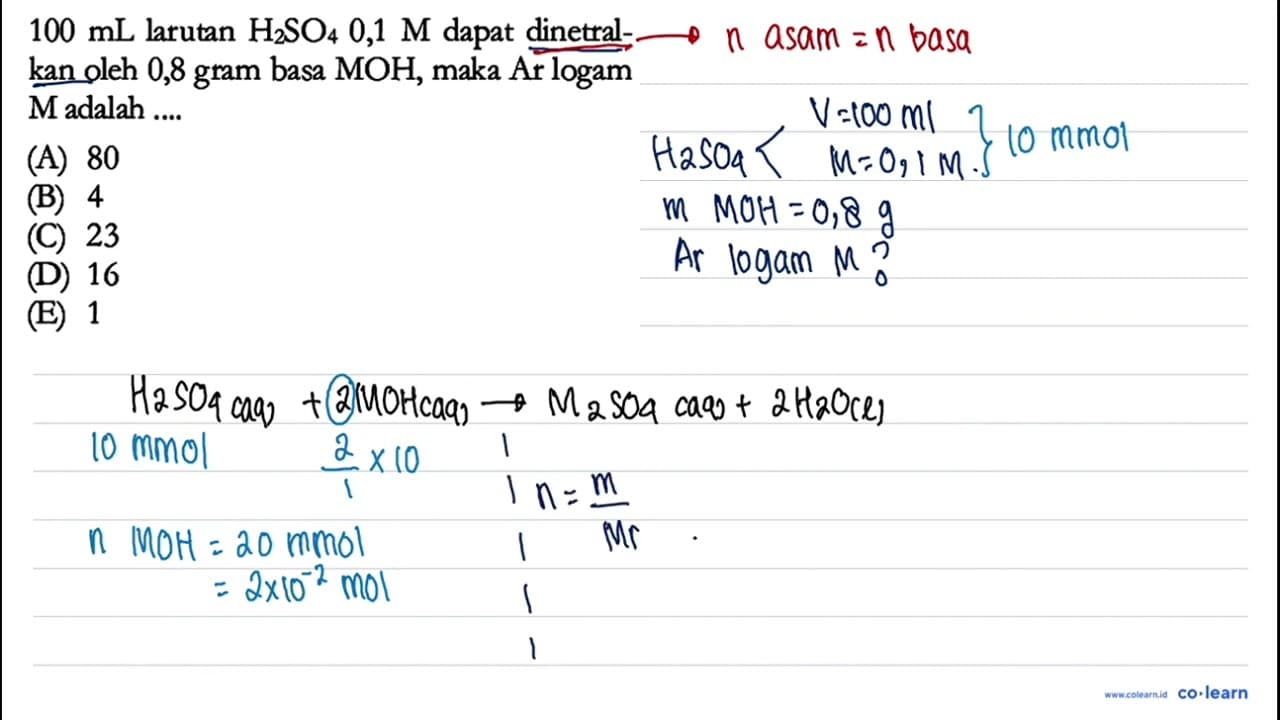 100 mL larutan H₂SO₄ 0,1 M dapat dinetral-
kan oleh 0,8 gram basa MOH, maka Ar logam
M adalah ....
(A) 80
(B) 4
(C) 23
(D) 16
(E) 1
n asam = n basa
H₂SO₄ < V = 100 ml
M = 0,1 M.
} 10 mmol
m MOH = 0,8 g
Ar logam M ?
H₂SO₄ (aq) + 2MOH (aq) → M₂SO₄ (aq) + 2H₂O (l)
10 mmol 2/1 × 10
n MOH = 20 mmol
= 2×10⁻² mol
n = m/Mr .
www.colearn.id co·learn